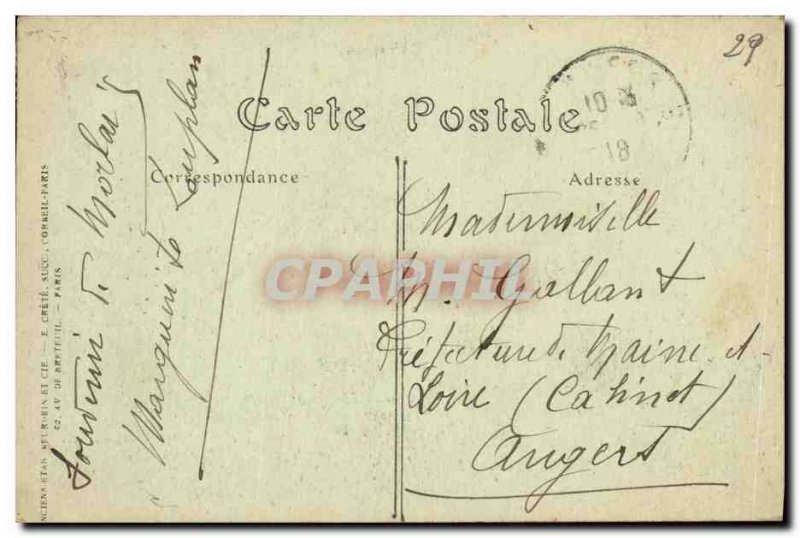 29
Carte Postale
10
18
Correspondance
Adresse
Souvenir de Morlaix
Mademoiselle
M. Gallant
Préfecture de Maine et
Loire (Cabinet)
Angers
CPAPHIL
ANCIENS ETAB. NEURDEIN ET CIE. — E. CRÉTÉ, SUCC., CORBEIL-PARIS
52, AV. DE BRETEUIL. — PARIS